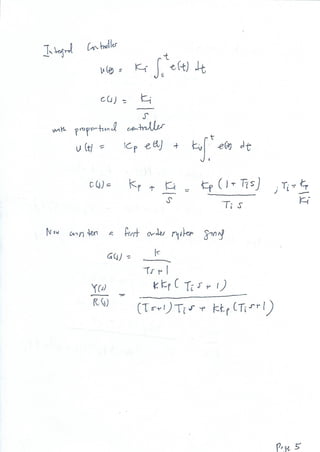 Integral Controller
u(t) = Ki ∫₀ᵗ e(t) dt
C(s) = Ki / S
with proportional controller
u(t) = Kp e(t) + Ki ∫₀ᵗ e(t) dt
C(s) = Kp + Ki / S = Kp (1 + Ti S) / Ti S , Ti = Kp / Ki
Now consider a first order system
G(s) = K / (Ts + 1)
Y(s) / R(s) = K Kp (Ti s + 1) / ((Ts + 1) Ti s + K Kp (Ti s + 1))
Page 5